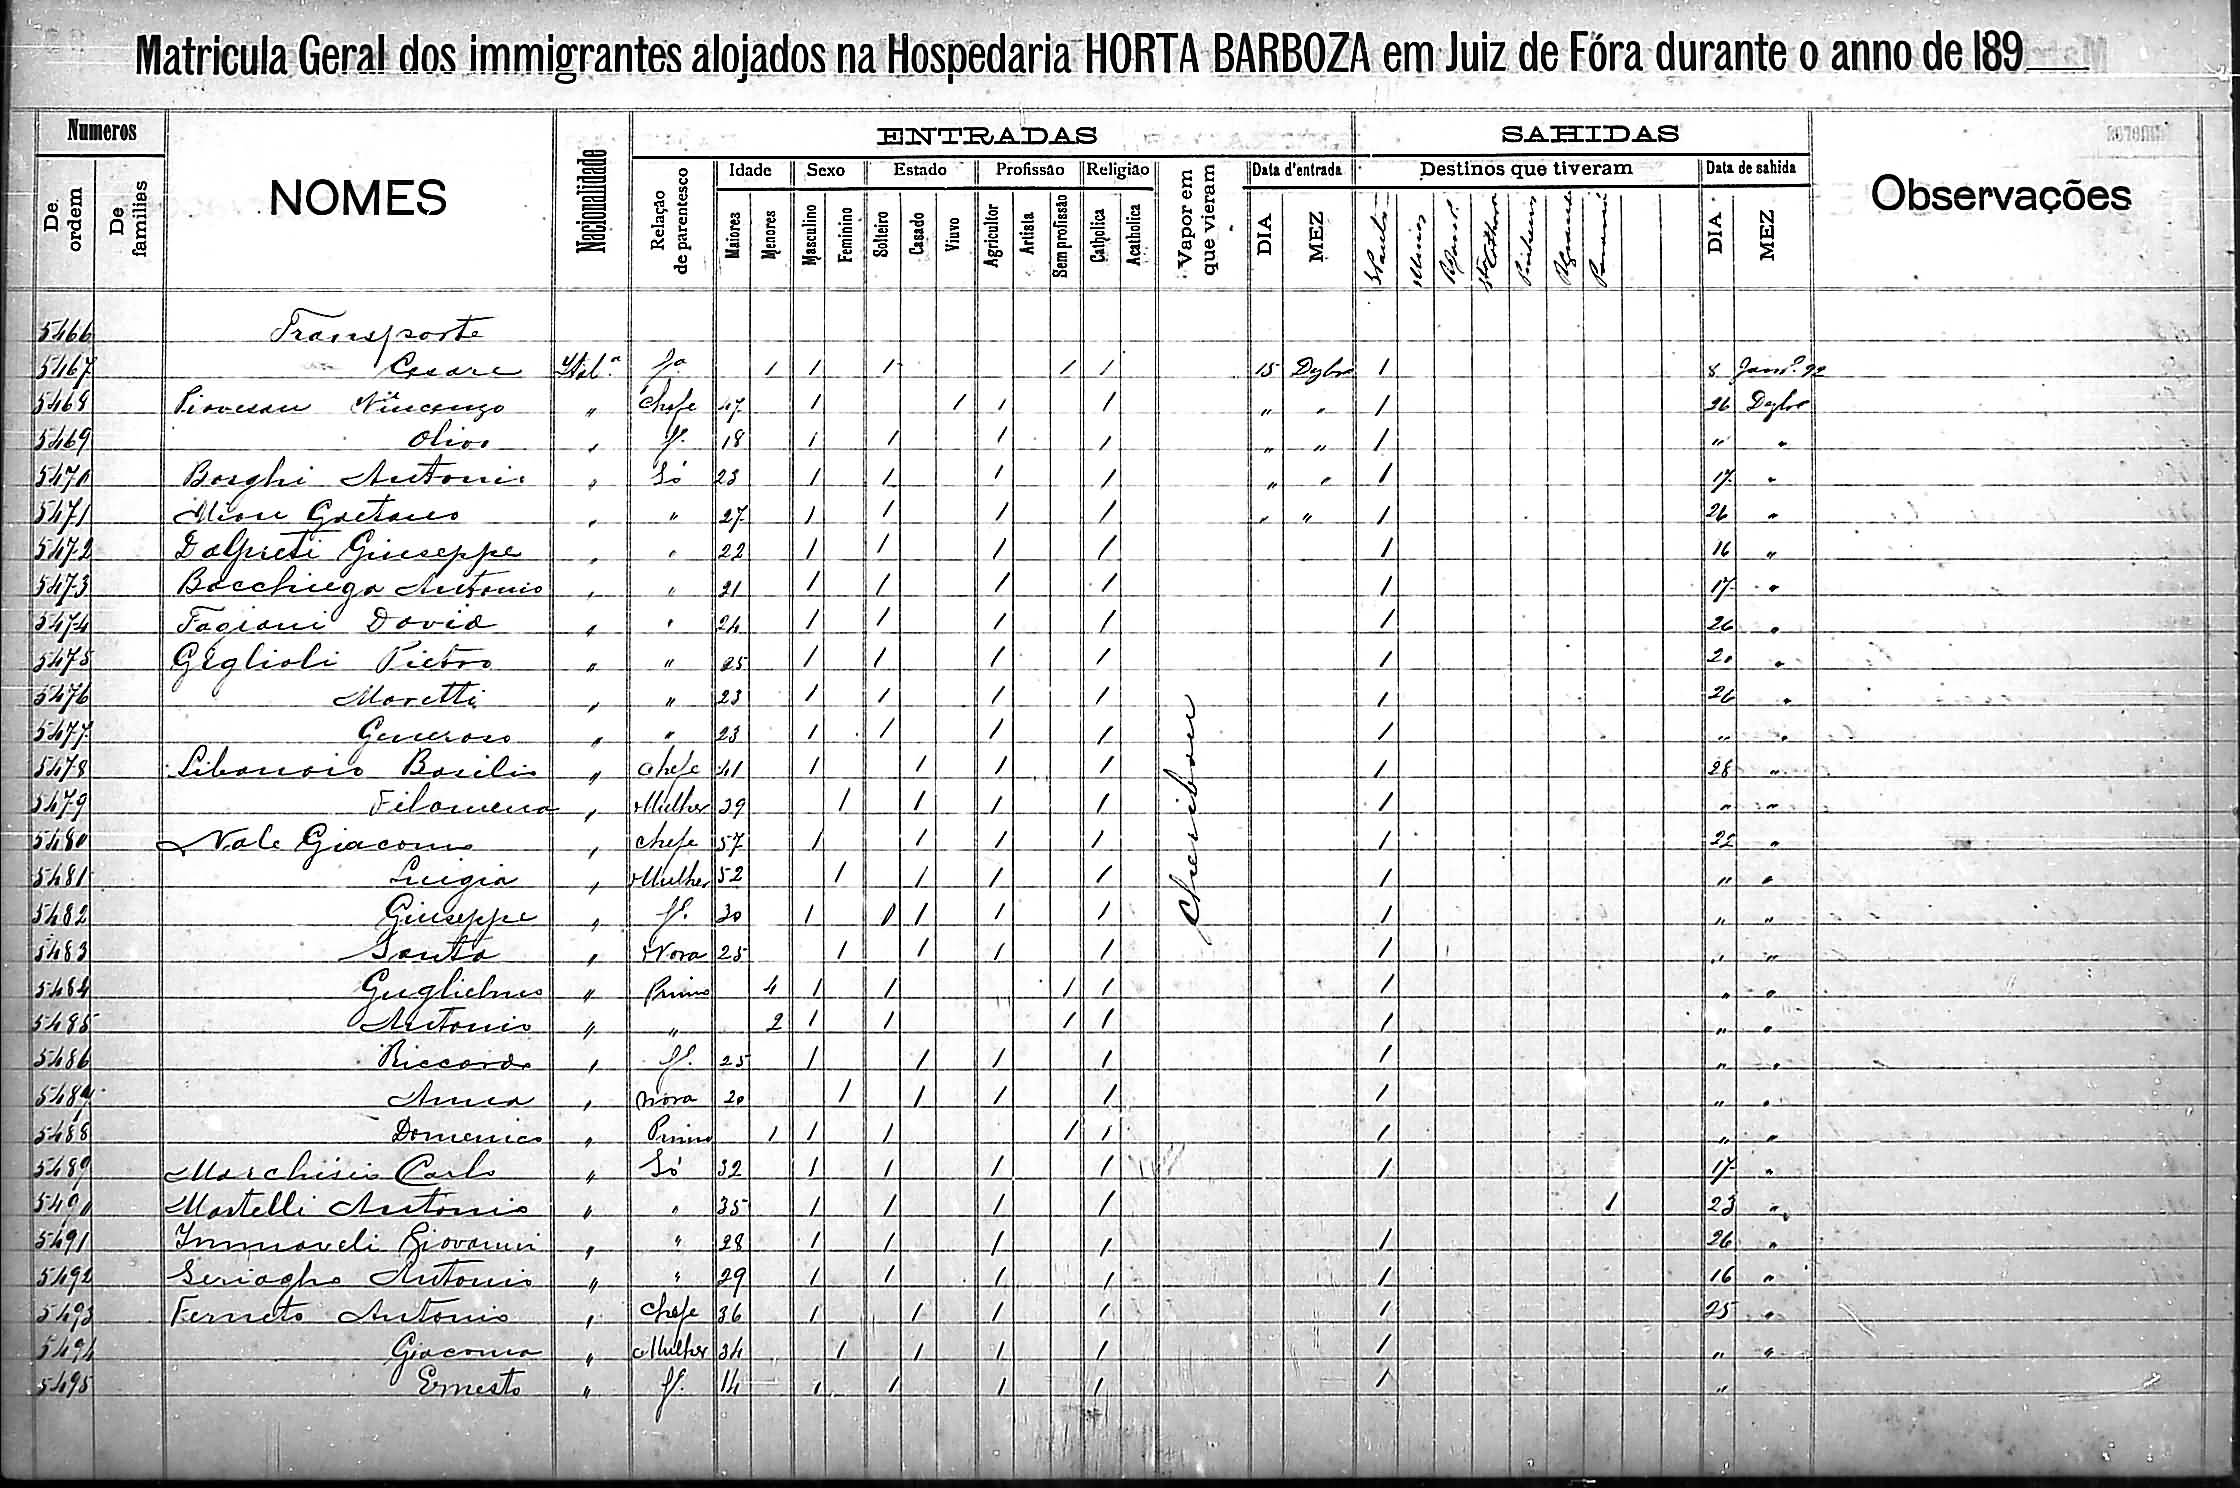 Matricula Geral dos immigrantes alojados na Hospedaria HORTA BARBOZA em Juiz de Fóra durante o anno de 189
Numeros NOMES Nacionalidade ENTRADAS SAHIDAS Observações
De ordem De familias Relação de parentesco Idade Sexo Estado Profissão Religião Vapor em que vieram Data d'entrada Destinos que tiveram Data de sahida
Maiores Menores Masculino Feminino Solteiro Casado Viuvo Agricultor Artista Sem profissão Catholica Acatholica DIA MEZ S Paulo Minas DIA MEZ
5466 Transporte
5467 Cesare Ital.ª fº 1 1 1 1 1 15 Dezbro 1 8 Janrº 92
5468 Piovesan Vincenzo " Chefe 47 1 1 1 1 " " 1 26 Dezbro
5469 Olivo " fº 18 1 1 1 1 " " 1 " "
5470 Borghi Antonio " Só 23 1 1 1 1 " " 1 17 "
5471 Mion Gaetano " " 27 1 1 1 1 " " 1 26 "
5472 Giuseppe " " 22 1 1 1 1 1 16 "
5473 Bacchiega Antonio " " 21 1 1 1 1 1 17 "
5474 Fagiani David " " 24 1 1 1 1 1 26 "
5475 Giglioli Pietro " " 25 1 1 1 1 1 20 "
5476 Moretti " " 23 1 1 1 1 1 26 "
5477 Generoso " " 23 1 1 1 1 1 " "
5478 Libanoro Basilio " Chefe 41 1 1 1 1 1 28 "
5479 Filomena " Mulher 39 1 1 1 1 1 " "
5480 Nale Giacomo " Chefe 57 1 1 1 1 1 22 "
5481 Luigia " Mulher 52 1 1 1 1 1 " "
5482 Giuseppe " fº 30 1 1 1 1 1 " "
5483 Santa " Nora 25 1 1 1 1 1 " "
5484 Guglielmo " Primo 4 1 1 1 1 1 " "
5485 Antonio " " 2 1 1 1 1 1 " "
5486 Riccardo " fº 25 1 1 1 1 1 " "
5487 Anna " Nora 20 1 1 1 1 1 " "
5488 Domenico " Primo 1 1 1 1 1 1 " "
5489 Marchisio Carlo " Só 32 1 1 1 1 1 17 "
5490 Martelli Antonio " " 35 1 1 1 1 1 23 "
5491 Giovanni " " 28 1 1 1 1 1 26 "
5492 Antonio " " 29 1 1 1 1 1 16 "
5493 Ferneto Antonio " Chefe 36 1 1 1 1 1 25 "
5494 Giacoma " Mulher 34 1 1 1 1 1 " "
5495 Ernesto " fº 14 1 1 1 1 1 "